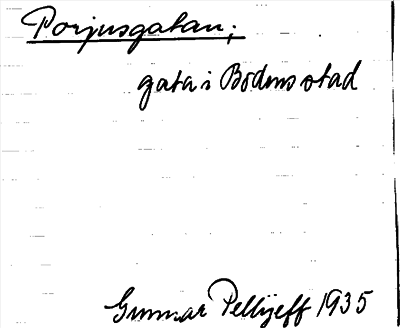 Porjusgatan;
gata i Bodens stad
Gunnar Pellijeff 1935